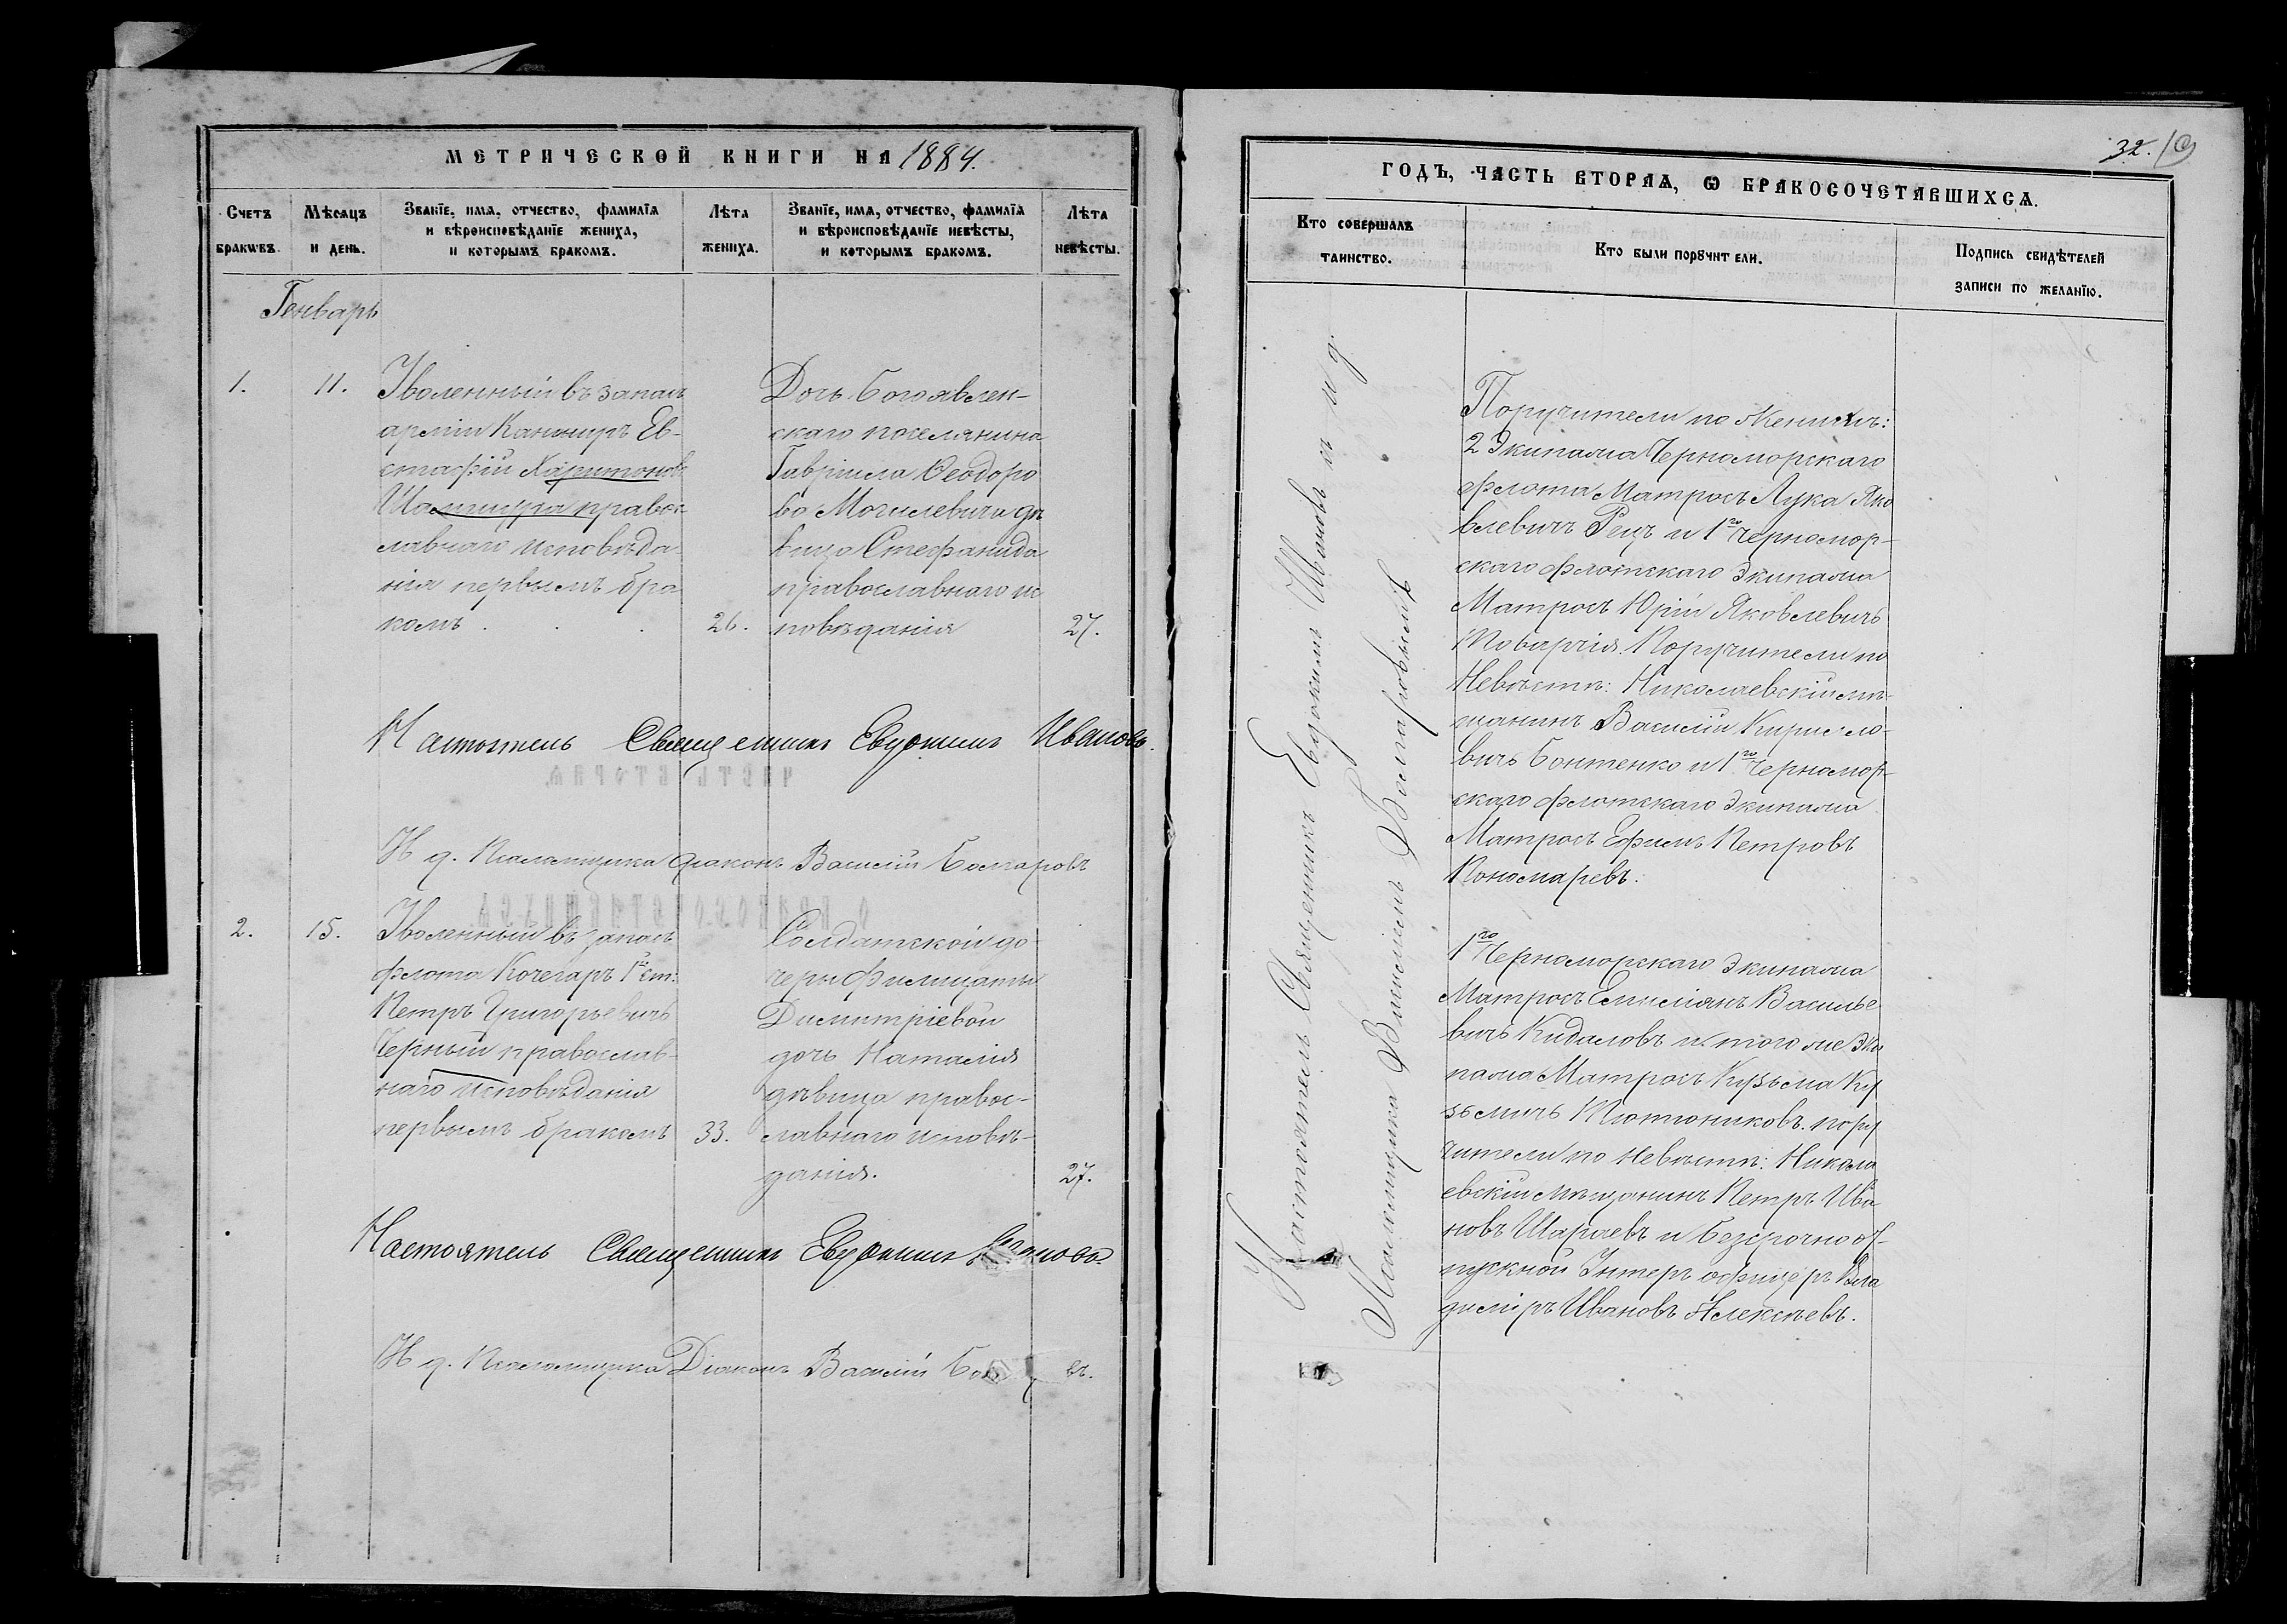 МЕТРИЧЕСКОЙ КНИГИ НА 1884.
Счетъ браковъ.
Мѣсяцъ и день.
Званїе, имѧ, отчество, фамилїѧ
и вѣроисповѣданїе жениха,
и которымъ бракомъ.
Лѣта жениха.
Званїе, имѧ, отчество, фамилїѧ
и вѣроисповѣданїе невѣсты,
и которымъ бракомъ.
Лѣта невѣсты.
Генварь
1.
11.
Уволенный въ запасъ
арміи Канониръ Ев-
стафій Харитоновъ
правос-
лавнаго исповѣда-
нія первымъ бра
комъ
26.
Дочь Богоявлен-
скаго поселянина
Гавріила Ѳеодоро
ва Могилевича дѣ
вица Стефанида
православнаго ис
повѣданія
27.
Настоятель Священникъ Евдокимъ Ивановъ.
И д. Псаломщика діаконъ Василій Болгаровъ
2.
15.
Уволенный въ запасъ
флота Кочегаръ 1й ст:
Петръ Григорьевичъ
Черный православ-
наго исповѣданія
первымъ бракомъ
33.
Солдатской до-
чери Филицаты
Димитріевой
дочь Наталія
дѣвица правос-
лавнаго исповѣ-
данія.
27.
Настоятель Священникъ Евдокимъ Ивановъ.
И д. Псаломщика Діаконъ Василій
32.
ГОДЪ, ЧАСТЬ ВТОРАѦ, Ѡ БРАКОСОЧЕТАВШИХСѦ.
Кто совершалъ
таинство.
Кто были порꙋчители.
Подпись свидѣтелей
записи по желанїю.
Настоятель Священникъ Евдокимъ Ивановъ съ и д.
Псаломщика Василіемъ Болгаровымъ
Поручители по Женихѣ:
2 Экипажа Черноморскаго
флота Матросъ Лука Яко
влевичъ Рецъ и 1го Черномор-
скаго флотскаго Экипажа
Матросъ Юрій Яковлевичъ
Поручители по
Невѣстѣ: Николаевскій мѣ-
щанинъ Василій Кирилло-
вичъ Бонтенко и 1го Черномор-
скаго флотскаго Экипажа
Матросъ Ефимъ Петровъ
Пономаревъ.
1го Черноморскаго Экипажа
Матросъ Емиліянъ Василье
вичъ Кидаловъ и того же Эки
пажа Матросъ Кузьма Ку
зьмичъ Плотниковъ. пору
чители по Невѣстѣ: Никола
евскій мѣщанинъ Петръ Ива
новъ Шараевъ и Безсрочноот-
пускной Унтеръ офицеръ Вла
диміръ Ивановъ Алексѣевъ.